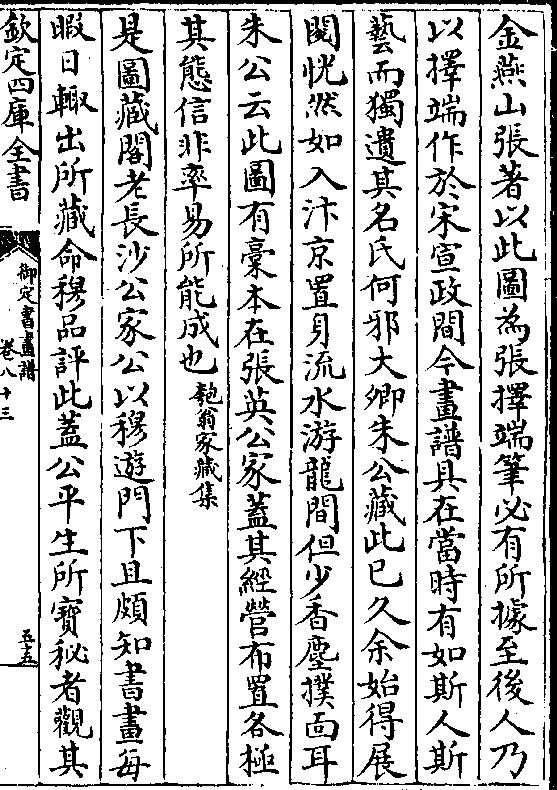 金燕山張著以此圖為張擇端筆必有所據至後人乃
以擇端作於宋宣政間今畫譜具在當時有如斯人斯
藝而獨遺其名氏何邪大卿朱公藏此已久余始得展
閱恍然如入汴京置身流水游龍間但少香塵撲面耳
朱公云此圖有稾本在張英公家蓋其經營布置各極
其態信非率易所能成也匏翁家藏集
是圖藏閣老長沙公家公以穆遊門下且頗知書畫每
暇日輙出所藏命穆品評此蓋公平生所寶秘者觀其
欽定四庫全書
御定書畫譜
卷八十三
五五